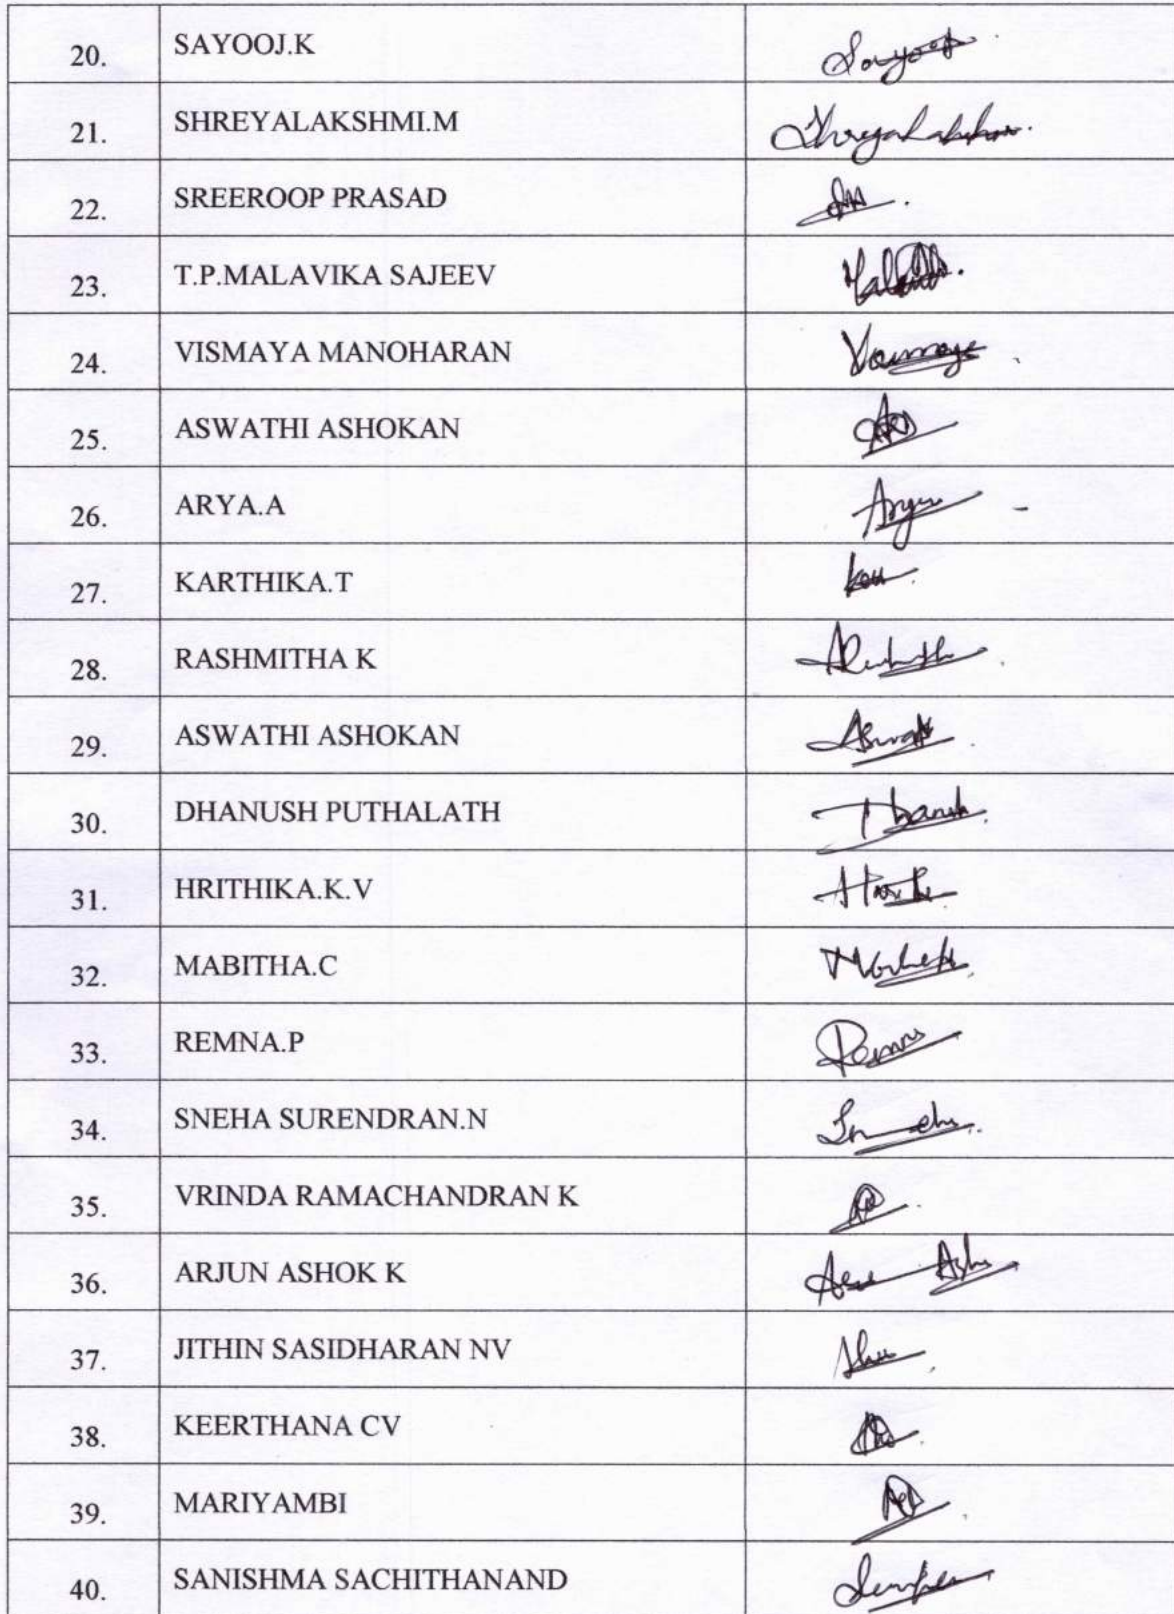 20. SAYOOJ.K Sayooj
21. SHREYALAKSHMI.M
22. SREEROOP PRASAD
23. T.P.MALAVIKA SAJEEV
24. VISMAYA MANOHARAN
25. ASWATHI ASHOKAN
26. ARYA.A Arya
27. KARTHIKA.T
28. RASHMITHA K
29. ASWATHI ASHOKAN
30. DHANUSH PUTHALATH
31. HRITHIKA.K.V
32. MABITHA.C
33. REMNA.P Remna
34. SNEHA SURENDRAN.N
35. VRINDA RAMACHANDRAN K
36. ARJUN ASHOK K
37. JITHIN SASIDHARAN NV
38. KEERTHANA CV
39. MARIYAMBI
40. SANISHMA SACHITHANAND